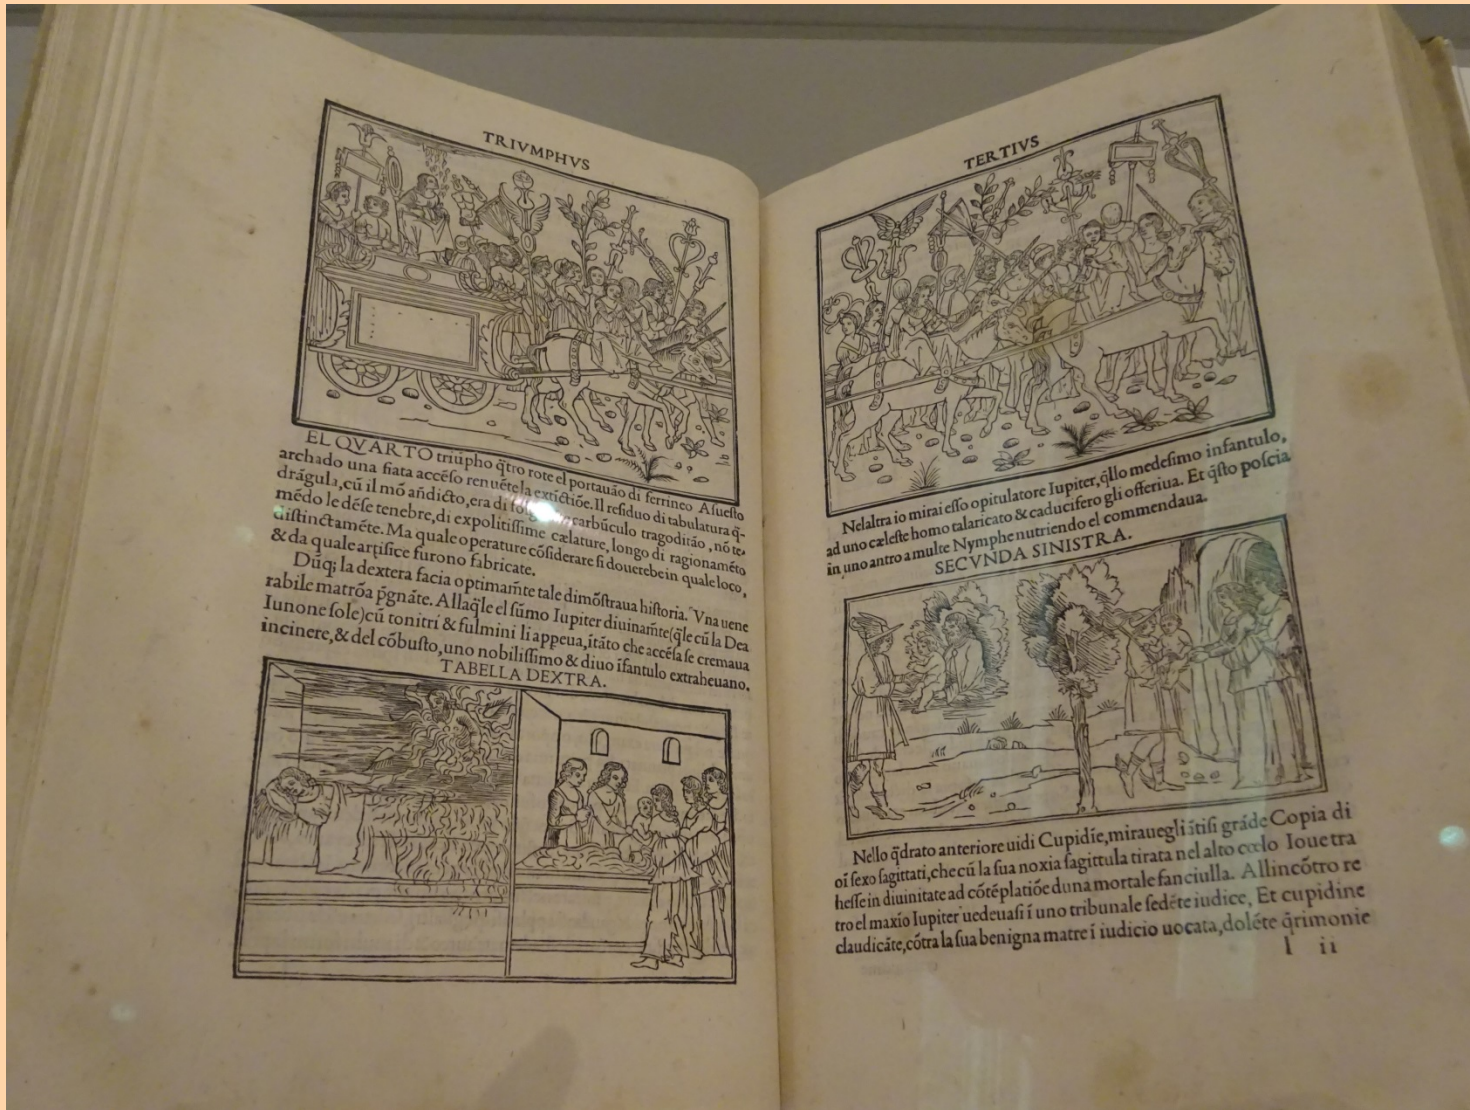 TRIVMPHVS
EL QVARTO triũpho q̃tro rote el portauão di ferrineo Asuesto
archado una fiata accẽso renuẽte la extictiõe. Il residuo di tabulatura q̃-
drãgula, cũ il mõ añdicto, era di carbũculo tragoditão, nõ te-
mẽdo le dẽse tenebre, di expolitissime cælature, longo di ragionamẽto
distinctamẽte. Ma quale operature cõsiderare si douerebe in quale loco,
& da quale artifice furono fabricate.
Dũq; la dextera facia optimam̃te tale dimõstraua historia. Vna uene
rabile matrõa p̃gnãte. Allaq̃le el sũmo Iupiter diuinam̃te (q̃le cũ la Dea
Iunone sole) cũ tonitri & fulmini li appeua, ĩtãto che accẽsa se cremaua
incinere, & del cõbusto, uno nobilissimo & diuo ĩfantulo extraheuano.
TABELLA DEXTRA.
TERTIVS
Nelaltra io mirai esso opitulatore Iupiter, q̃llo medesimo infantulo,
ad uno cæleste homo talaricato & caducifero gli offeriua. Et q̃sto poscia
in uno antro a multe Nymphe nutriendo el commendaua.
SECVNDA SINISTRA.
Nello q̃drato anteriore uidi Cupidĩe, mirauegli ãtisi grãde Copia di
oĩ sexo sagittati, che cũ la sua noxia sagittula tirata nel alto cœlo Ioue tra
hesse in diuinitate ad cõtẽplatiõe duna mortale fanciulla. Allincõtro re
tro el maxĩo Iupiter uedeuasi ĩ uno tribunale sedẽte iudice, Et cupidine
claudicãte, cõtra la sua benigna matre ĩ iudicio uocata, dolẽte q̃rimonie
l ii